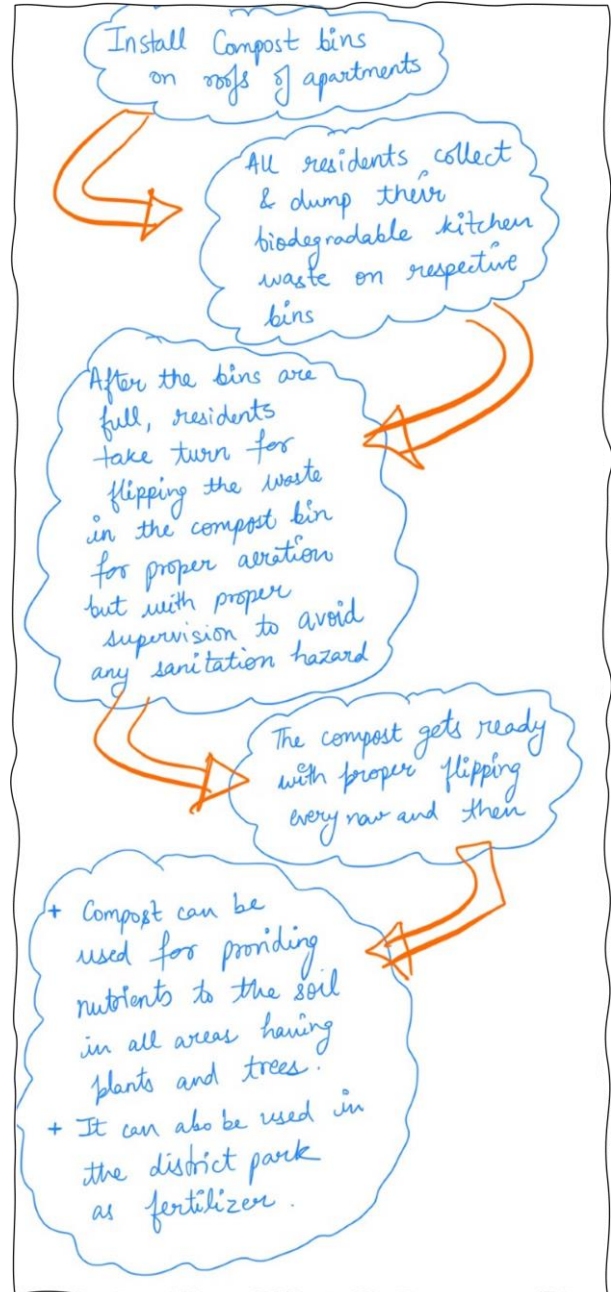 Install Compost bins
on roofs of apartments
All residents collect
& dump their
biodegradable kitchen
waste on respective
bins
After the bins are
full, residents
take turn for
flipping the waste
in the compost bin
for proper aeration
but with proper
supervision to avoid
any sanitation hazard
The compost gets ready
with proper flipping
every now and then
+ Compost can be
used for providing
nutrients to the soil
in all areas having
plants and trees.
+ It can also be used in
the district park
as fertilizer.